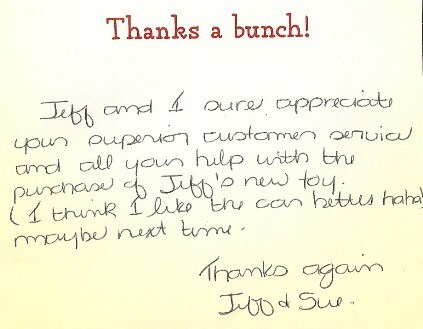 Thanks a bunch!
Jeff and I sure appreciate
your superior customer service
and all your help with the
purchase of Jeff's new toy.
(I think I like the car better haha)
maybe next time.
Thanks again
Jeff & Sue.